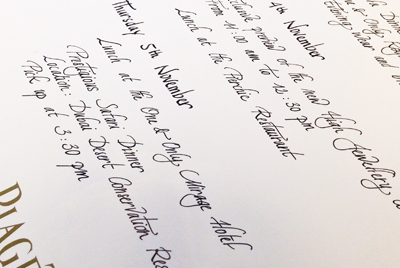 & Only
Evening wear and
4th November
preview of the new High Jewellery
From am to 12:30 pm
Lunch at the Restaurant
Thursday 5th November
Lunch at the One & Only Mirage Hotel
Prestigious Safari Dinner
Location: Dubai Desert Conservation Res
Pick up at 3:30 pm
PIAGE